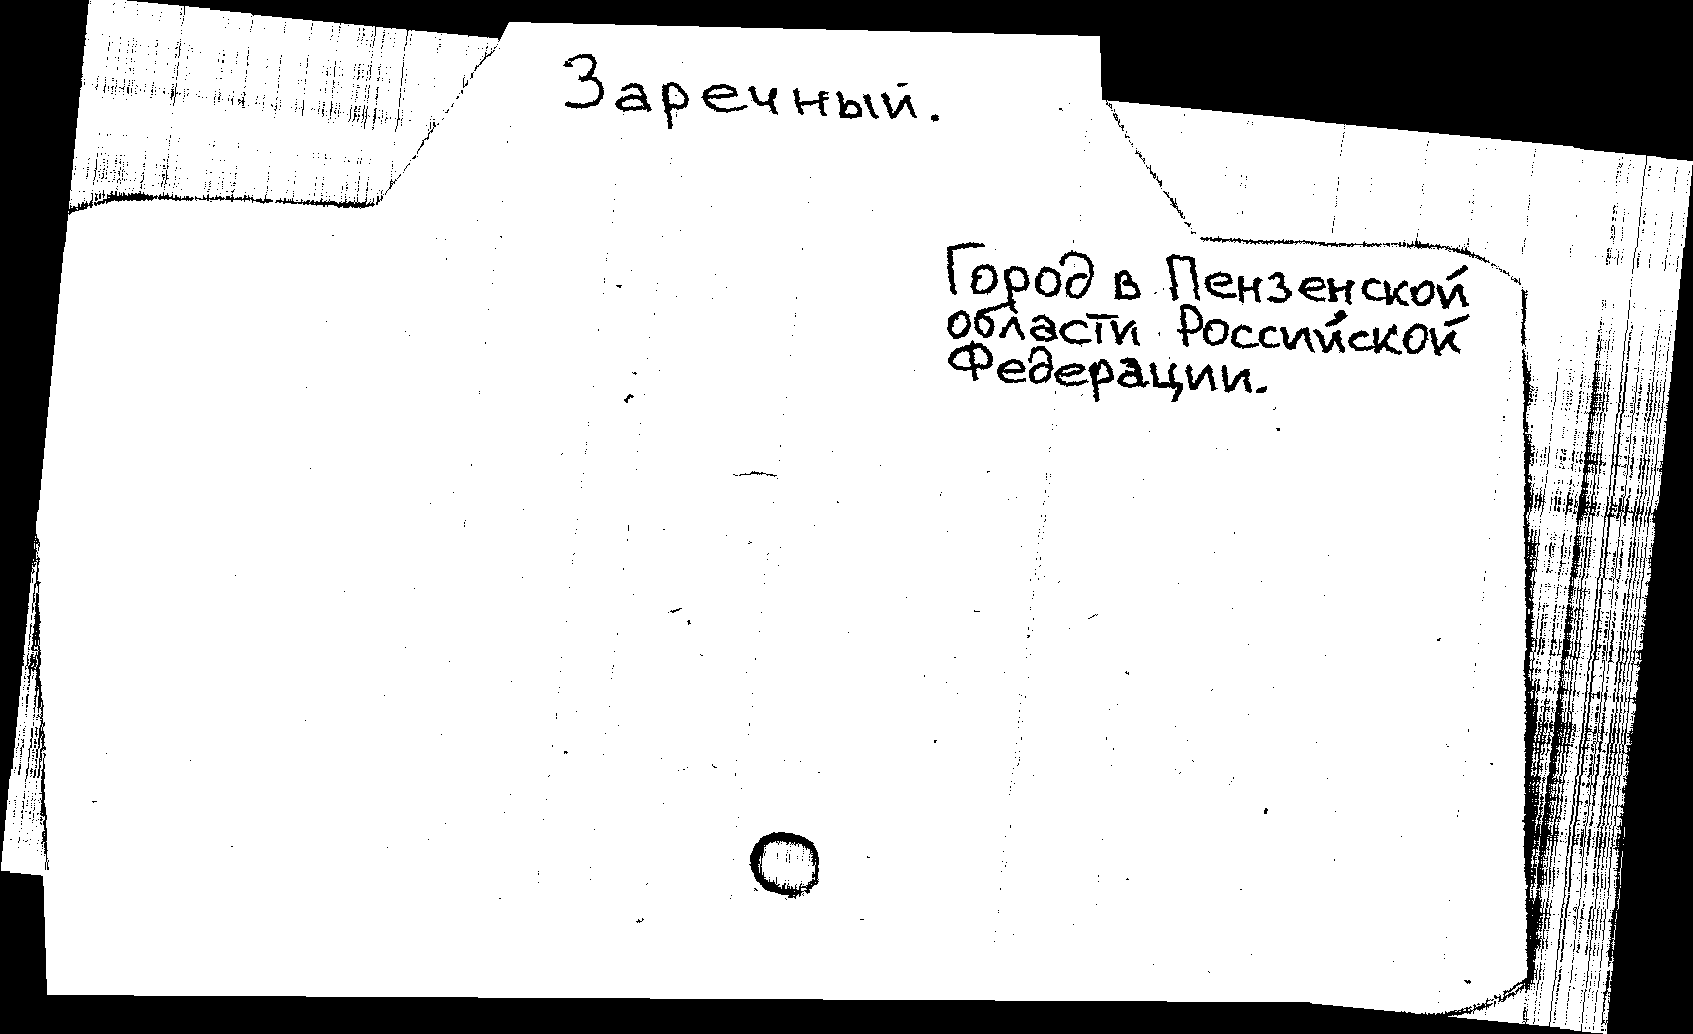 Заречный.
Город в Пензенской
области Российской
Федерации.